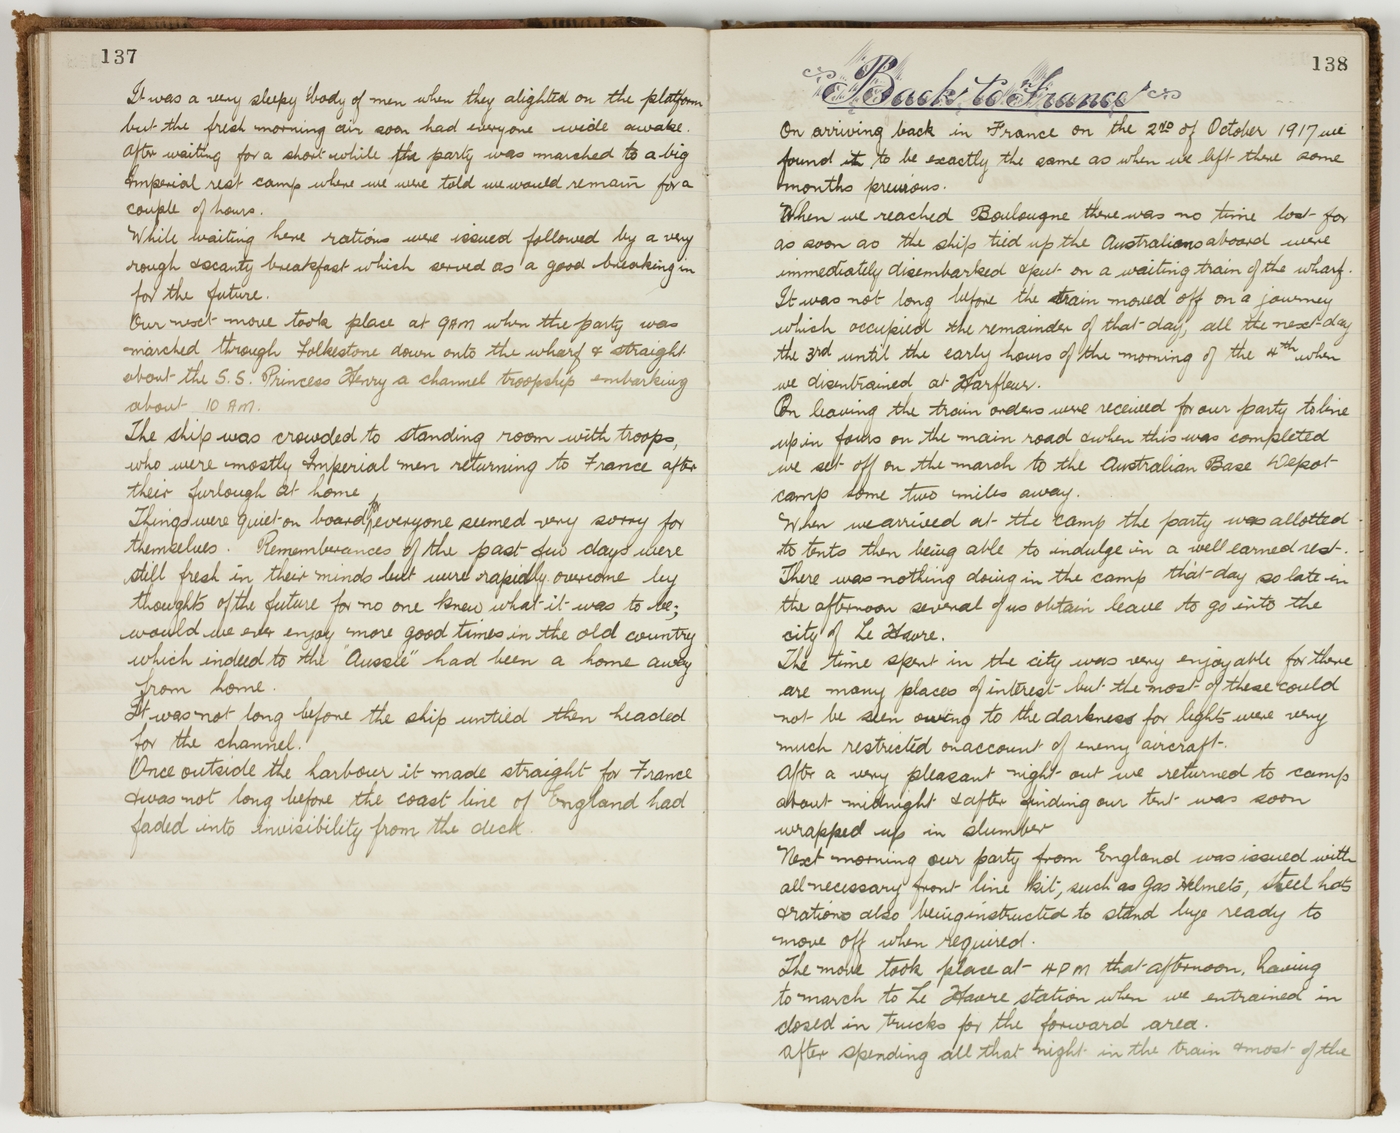 137
It was a very sleepy body of men when they alighted on the platform
but the fresh morning air soon had everyone wide awake.
After waiting for a short while the party was marched to a big
Imperial rest camp where we were told we would remain for a
couple of hours.
While waiting here rations were issued followed by a very
rough & scanty breakfast which served as a good breaking in
for the future.
Our next move took place at 9 AM when the party was
marched through Folkestone down onto the wharf & straight
about the S.S. Princess Henry a channel troopship embarking
about 10 AM.
The ship was crowded to standing room with troops,
who were mostly Imperial men returning to France after
their furlough at home
Things were quiet on board, for everyone seemed very sorry for
themselves. Rememberances of the past few days were
still fresh in their minds but were rapidly overcome by
thoughts of the future for no one knew what it was to be;
would we ever enjoy more good times in the old country
which indeed to the "Aussie" had been a home away
from home.
It was not long before the ship untied then headed
for the channel.
Once outside the harbour it made straight for France
& was not long before the coast line of England had
faded into invisibility from the deck.
138
Back to France
On arriving back in France on the 2nd of October 1917 we
found it to be exactly the same as when we left there some
months previous.
When we reached Boulougne there was no time lost for
as soon as the ship tied up the Australians aboard were
immediately disembarked & put on a waiting train of the wharf.
It was not long before the train moved off on a journey
which occupied the remainder of that day, all the next day
the 3rd until the early hours of the morning of the 4th when
we disentrained at Harfleur.
On leaving the train orders were received for our party to line
up in fours on the main road & when this was completed
we set off on the march to the Australian Base Depot
camp some two miles away.
When we arrived at the camp the party was allotted
to tents then being able to indulge in a well earned rest.
There was nothing doing in the camp that day so late in
the afternoon several of us obtain leave to go into the
city of Le Havre.
The time spent in the city was very enjoyable for there
are many places of interest but the most of these could
not be seen owing to the darkness for lights were very
much restricted on account of enemy aircraft.
After a very pleasant night out we returned to camp
about midnight & after finding our tent was soon
wrapped up in slumber
Next morning our party from England was issued with
all necessary front line kit, such as Gas Helmets, steel hats
& rations also being instructed to stand bye ready to
move off when required.
The move took place at 4 PM that afternoon, having
to march to Le Havre station when we entrained in
closed in trucks for the forward area.
After spending all that night in the train & most of the